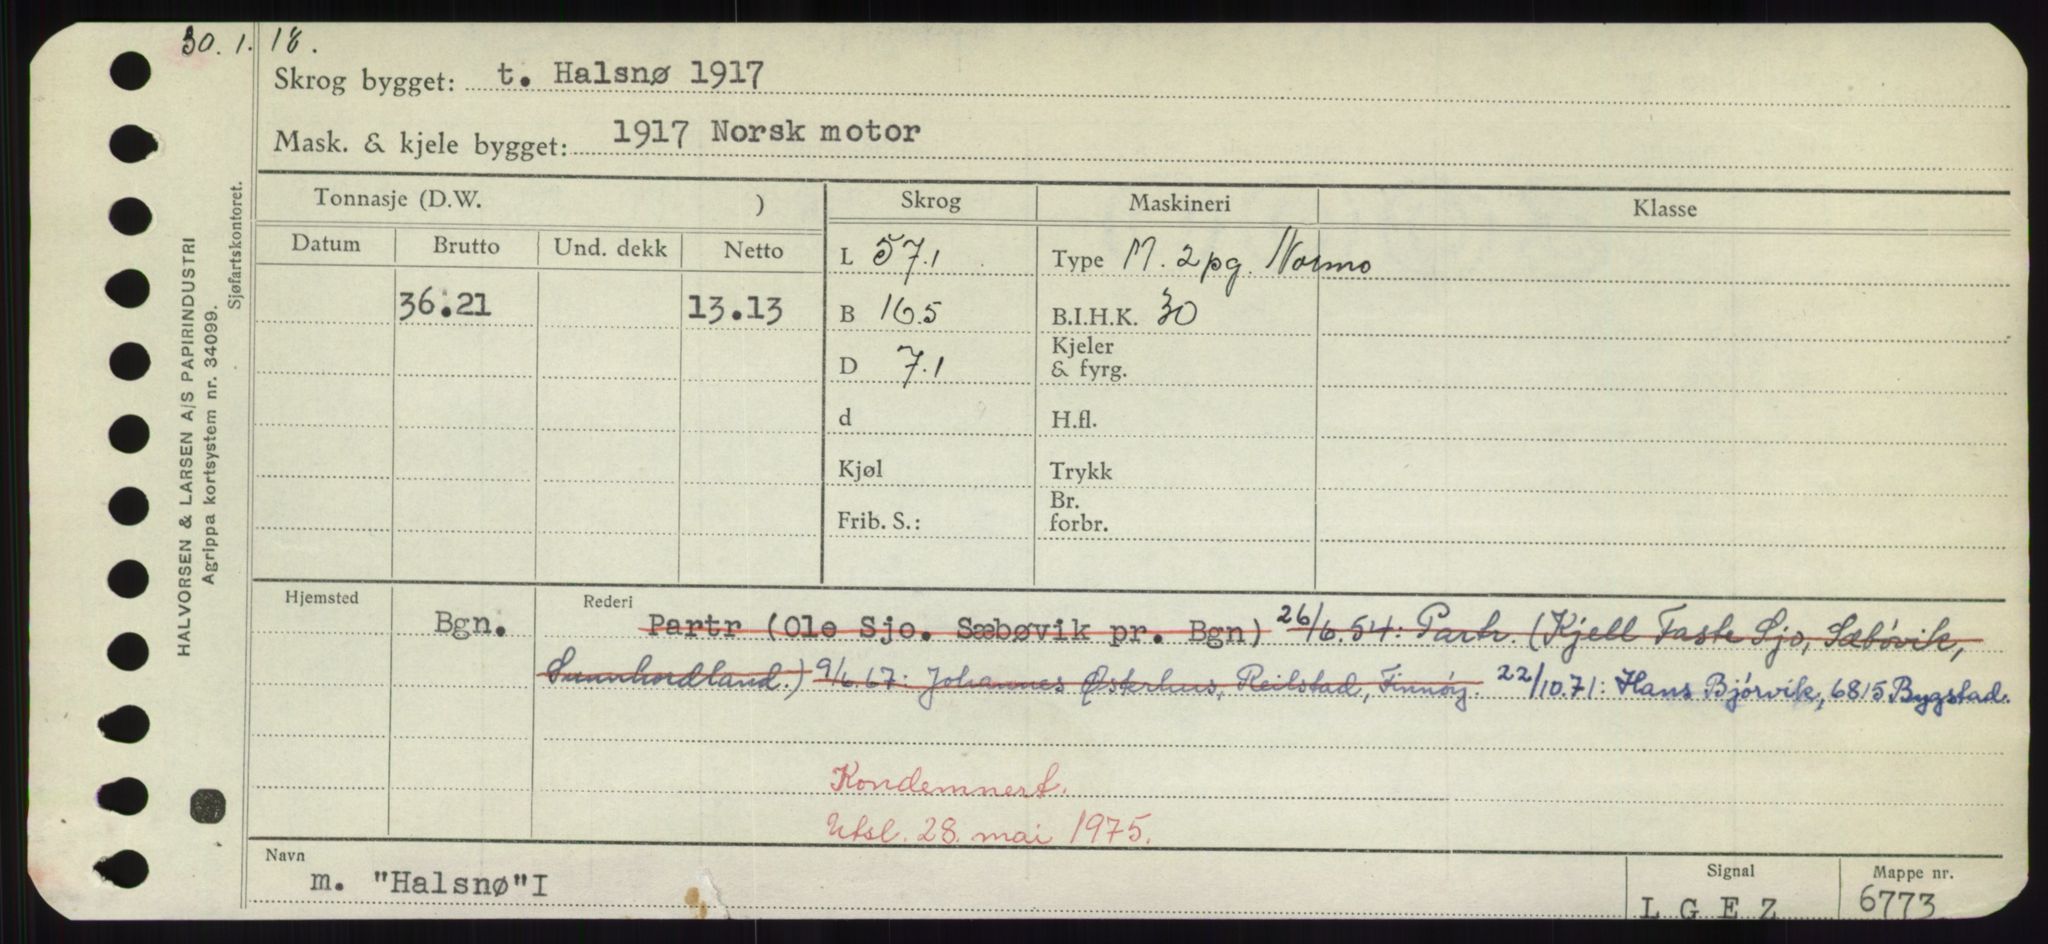 30.1.18.
Skrog bygget: t. Halsnø 1917
Mask. & kjele bygget: 1917 Norsk motor
HALVORSEN & LARSEN A/S PAPIRINDUSTRI
Agrippa kortsystem nr. 34099.
Sjøfartskontoret.
Tonnasje (D.W. ) Skrog Maskineri Klasse
Datum Brutto Und. dekk Netto
L 57.1 Type M. 2pg. Normo
36.21 13.13 B 16.5 B.I.H.K. 30
D 7.1 Kjeler & fyrg.
d H.fl.
Kjøl Trykk
Frib. S.: Br. forbr.
Hjemsted Bgn. Rederi Partr (Ole Sjo. Sæbøvik pr. Bgn) 26/6.54: Partr. (Kjell Taste Sjo, Sæbövik,
Sunnhordland.) 9/6.67: Johannes Østerhus, Reilstad, Finnöy. 22/10.71: Hans Bjórvik, 6815 Bygstad.
Kondemnert.
Utsl. 28. mai 1975.
Navn Signal Mappe nr.
m. "Halsnø"I L G E Z 6773